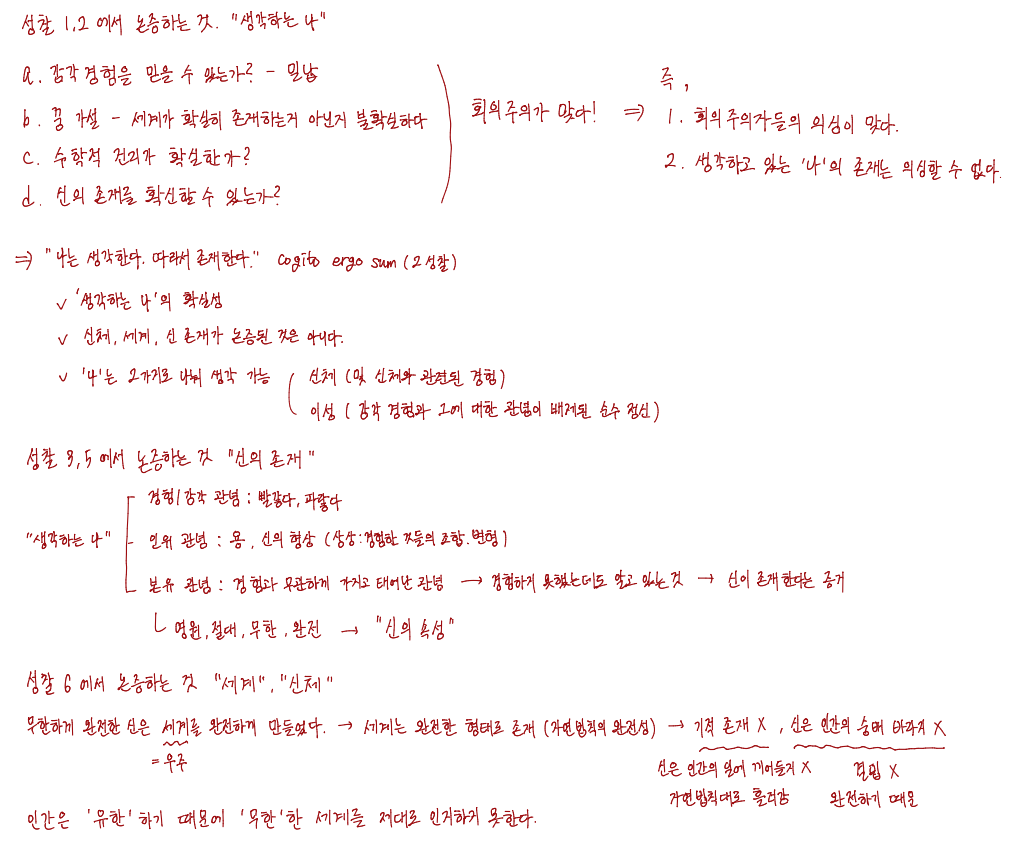 성찰 1,2 에서 논증하는 것. "생각하는 나"
a. 감각경험을 믿을 수 있는가? - 밀납
b. 꿈 가설 - 세계가 확실히 존재하는거 아닌지 불확실하다
c. 수학적 진리가 확실한가?
d. 신의 존재를 확신할 수 있는가?
회의주의가 맞다! ⇒ 즉,
1. 회의주의자들의 의심이 맞다.
2. 생각하고 있는 '나'의 존재는 의심할 수 없다.
⇒ "나는 생각한다. 따라서 존재한다." cogito ergo sum (2성찰)
✓ '생각하는 나'의 확실성
✓ 신체, 세계, 신 존재가 논증된 것은 아니다.
✓ '나'는 2가지로 나눠 생각 가능
신체 (및 신체와 관련된 경험)
이성 ( 감각 경험과 그에 대한 관념이 배제된 순수 정신)
성찰 3,5 에서 논증하는 것 "신의 존재"
"생각하는 나"
경험/감각 관념 : 빨갛다, 파랗다
인위 관념 : 용, 신의 형상 (상상:경험한 것들의 조합.변형)
본유 관념 : 경험과 무관하게 가지고 태어난 관념 → 경험하지 못했는데도 알고 있는 것 → 신이 존재한다는 증거
영원, 절대, 무한, 완전 → "신의 속성"
성찰 6 에서 논증하는 것 "세계", "신체"
무한하게 완전한 신은 세계를 완전하게 만들었다. → 세계는 완전한 형태로 존재 (자연법칙의 완전성) → 기적 존재 X , 신은 인간의 숭배 바라지 X
= 우주
신은 인간의 일에 끼어들지 X
자연법칙대로 흘러감
결핍 X
완전하기 때문
인간은 '유한'하기 때문에 '무한'한 세계를 제대로 인지하지 못한다.